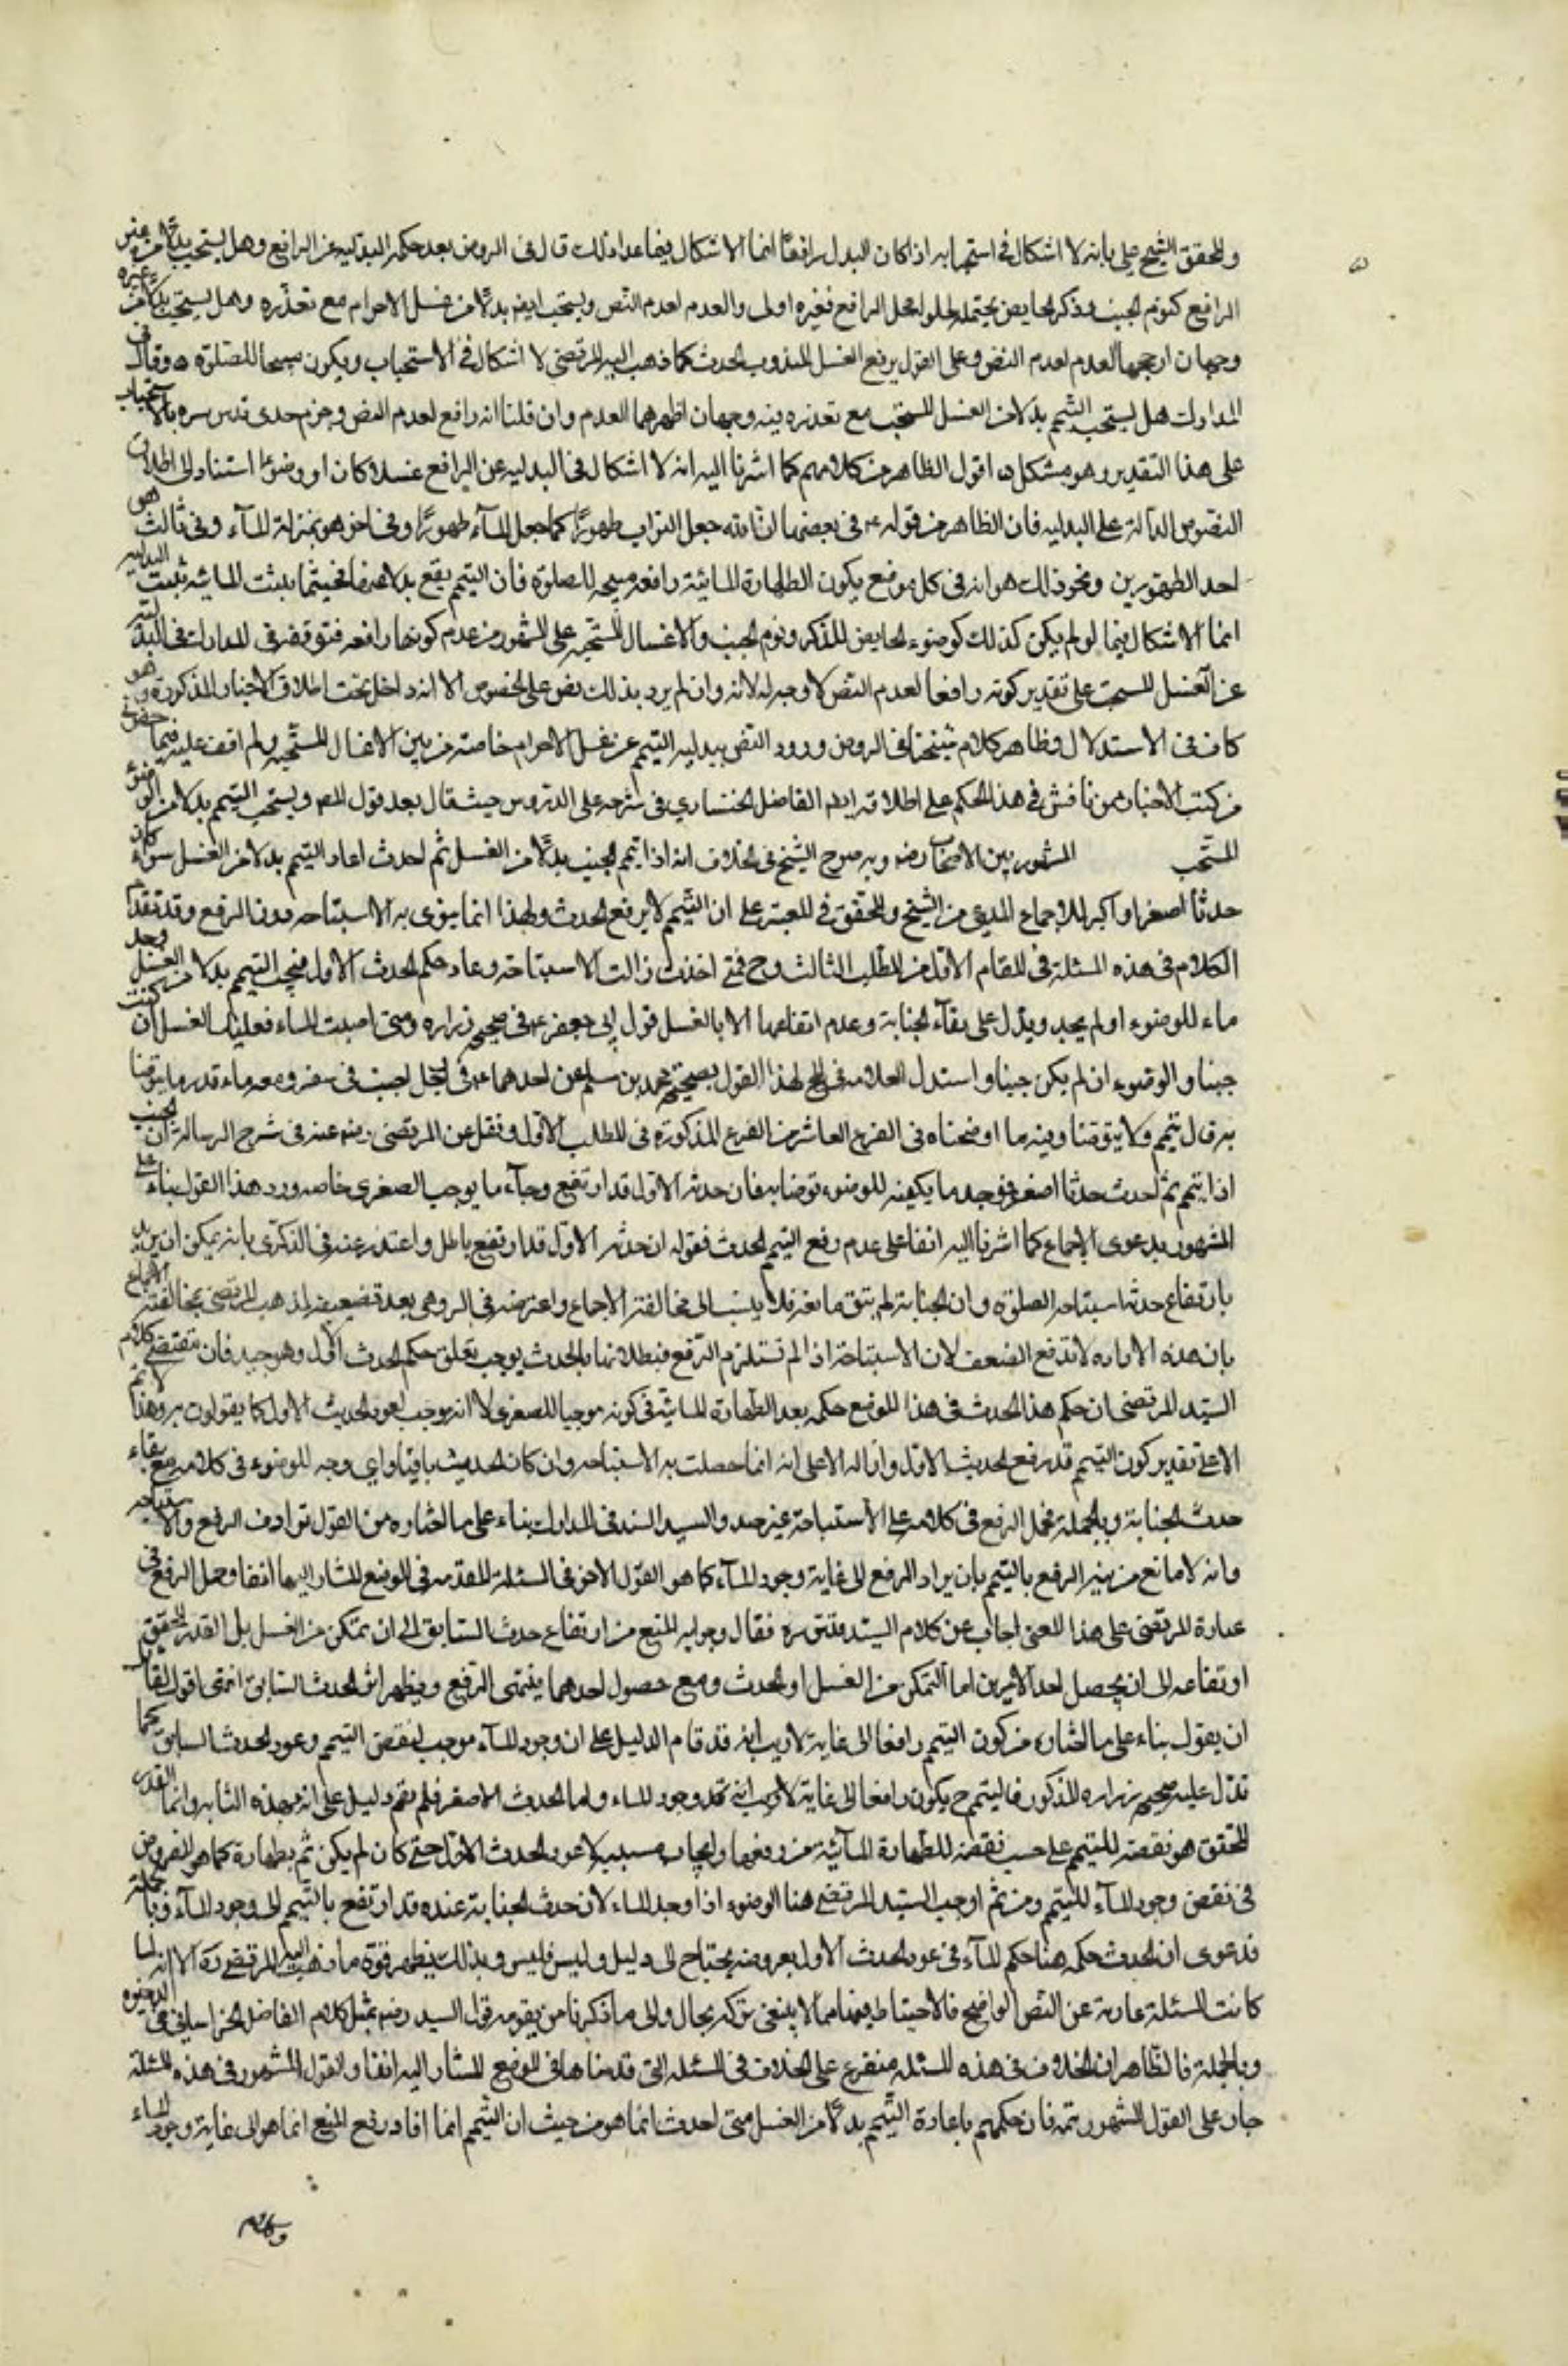 والمحقق الشيخ علي بانه لا اشكال في استحبابه اذا كان البدل رافعًا انما الاشكال فيما عدا ذلك قال في الروض بعد حكمه بالبدلية عن الرافع وهل يستحب بدلًا من غير
الرافع كنوم الجنب وذكر الحايض يحتمله لحلوله محل الرافع فغيره اولى والعدم لعدم النص ويستحب ايضا بدلًا من غسل الاحرام مع تعذّره وهل يستحب بدلا من غيره
وجهان ارجحهما العدم لعدم النص وعلى القول برفع الغسل المندوب الحدث كما ذهب اليه المرتضى لا اشكال في الاستحباب ويكون مبيحا للصلوة ه وقال في
المدارك هل يستحب التيمم بدلا من الغسل المستحب مع تعذره فيه وجهان اظهرهما العدم وان قلنا انه رافع لعدم النص وجزم جدي قدس سره بالاستحباب
على هذا التقدير وهو مشكل ه اقول الظاهر من كلامهم كما اشرنا اليه انه لا اشكال في البدلية عن الرافع غسلا كان او وضوءا استنادا الى اطلاق
النصوص الدالة على البدلية فان الظاهر من قوله ع في بعضها ان الله جعل التراب طهورًا كما جعل المآء طهورًا وفي اخر هو بمنزلة المآء وفي ثالث هو
احد الطهورين ونحو ذلك هو انه في كل موضع يكون الطهارة المائية رافعه مبيحه للصلوة فان التيمم يقع بدلا عنها فحيثما ثبتت المائيه ثبتت البدليه
انما الاشكال فيما لو لم يكن كذلك كوضوء الحايض للذكر ونوم الجنب والاغسال المستحبه على المشهور من عدم كونها رافعه فتوقفه في المدارك في البدلية
عن الغسل المستحب على تقدير كونه رافعا لعدم النص لا وجه له لانه وان لم يرد بذلك نص على الخصوص الا انه داخل تحت اطلاق الاخبار المذكورة وهو
كاف في الاستدلال وظاهر كلام شيخنا في الروض ورود النص ببدليه التيمم عن غسل الاحرام خاصة من بين الاغسال المستحبه ولم اقف عليه فيما حضرني
من كتب الاخبار وممن ناقش في هذا الحكم على اطلاقه ايضا الفاضل الخنساري في شرحه على الدروس حيث قال بعد قول المص ويستحب التيمم بدلا من الوضوء
المستحب المشهور بين الاصحاب رضو وبه صرح الشيخ في الخلاف انه اذا تيمم الجنب بدلًا من الغسل ثم احدث اعاد التيمم بدلا من الغسل سواء كان
حدثًا اصغر او اكبر للاجماع المدعى من الشيخ والمحقق في المعتبر على ان التيمم لا يرفع الحدث ولهذا انما ينوى به الاستباحه دون الرفع وقد تقدم
الكلام في هذه المسئلة في المقام الاول من المطلب الثالث وح فمتى احدث زالت الاستباحة وعاد حكم الحدث الاول فيجب التيمم بدلا من الغسل وجد
ماء للوضوء او لم يجد ويدل على بقآء الجنابة وعدم ارتفاعها الا بالغسل قول ابي جعفر ع في صحيح زراره ومتى اصبت الماء فعليك الغسل ان كنت
جنبا والوضوء ان لم يكن جنبا واستدل العلامه في المخ لهذا القول بصحيحة محمد بن مسلم عن احدهما ع في الرجل اجنب في سفر ومعه ماء قدر ما يتوضأ
به قال يتيمم ولا يتوضأ وفيه ما اوضحناه في الفرع العاشر من الفروع المذكورة في المطلب الاول ونقل عن المرتضى رضه عنه في شرح الرسالة ان الجنب
اذا تيمم ثم احدث حدثا اصغر ووجد ما يكفيه للوضوء توضا به فان حدثه الاول قد ارتفع وجآء ما يوجب الصغرى خاصه ورد هذا القول بناء على
المشهور بدعوى الاجماع كما اشرنا اليه انفا على عدم رفع التيمم الحدث فقوله ان حدثه الاول قد ارتفع باطل واعتذر عنه في الذكرى بانه يمكن ان يريد
بارتفاع حدثه استباحه الصلوة وان الجنابة لم تبق مانعة فلا ينسب الى مخالفة الاجماع واعترضه في الروض بعد تضعيفه لمذهب المرتضى بمخالفة الاجماع
بان هذه الارادة لا تدفع الضعف لان الاستباحة اذا لم تستلزم الرفع فبطلانها بالحدث يوجب تعلق حكم الحدث الاول وهو جيد فان مقتضى كلام
السيد المرتضى ان حكم هذا الحدث في هذا الموضع حكمه بعد الطهارة المائية في كونه موجبا للصغرى لا انه يوجب لعود الحدث الاول كما يقولون به وهذا لا يتم
الا على تقدير كون التيمم قد رفع الحدث الاول وازاله لا على انه انما حصلت به الاستباحه وان كان الحدث باقيا واي وجه للوضوء في كلامه مع بقاء
حدث الجنابة وبالجملة فحمل الرفع في كلامه على الاستباحة غير جيد والسيد السند في المدارك بناء على ما اختاره من القول بترادف الرفع والاستباحه
وانه لا مانع من نية الرفع بالتيمم بان يراد الرفع الى غاية وجود المآء كما هو القول الاخر في المسئلة المتقدمه في الموضع المشار اليها انفا وحمل الرفع في
عبارة المرتضى على هذا المعنى اجاب عن كلام السيد قدس سره فقال وجوابه المنع من ارتفاع حدث السابق الى ان يتمكن من الغسل بل القدر المحقق
ارتفاعه الى ان يحصل احد الامرين اما التمكن من الغسل او الحدث ومع حصول احدهما ينتهى الرفع ويظهر اثر الحدث السابق انتهى اقول لقائل
ان يقول بناء على ما اختاره من كون التيمم رافعا الى غاية لا ريب انه قد قام الدليل على ان وجود المآء موجب لنقض التيمم وعود الحدث السابق كما
تدل عليه صحيحة زراره المذكوره فالتيمم ح يكون رافعا الى غاية لا ريب انه عند وجود الماء واما الحدث الاصغر فلم يقم دليل على انه بهذه المثابه وانما القدر
المحقق هو نقضه للتيمم على حسب نقضه للطهارة المآئية من رفعها وايجاب مسببه لا عود الحدث الاول حتى كان لم يكن ثم طهارة كما هو المفروض
في نقض وجود المآء للتيمم ومن ثم اوجب السيد المرتضى هنا الوضوء اذا وجد الماء لان حدث الجنابة عنده قد ارتفع بالتيمم الى وجود المآء وبالجملة
فدعوى ان الحدث حكمه هنا حكم المآء في عود الحدث الاول بعروضه يحتاج الى دليل وليس فليس وبذلك يظهر قوة ما ذهب اليه المرتضى ره الا انه لما
كانت المسئلة عارية عن النص الواضح فالاحتياط فيها مما لا ينبغي تركه بحال والى ما ذكرنا من تقوية قول السيد رضه يميل كلام الفاضل الخراساني في الذخيره
وبالجملة فالظاهر ان الخلاف في هذه المسئله متفرع على الخلاف في المسئله التي قدمناها في الموضع المشار اليه انفا والقول المشهور في هذه المسئلة
جار على القول المشهور ثمه فان حكمهم باعادة التيمم بدلًا من الغسل متى احدث انما هو من حيث ان التيمم انما افاد رفع المنع انما هو الى غاية وجود الماء